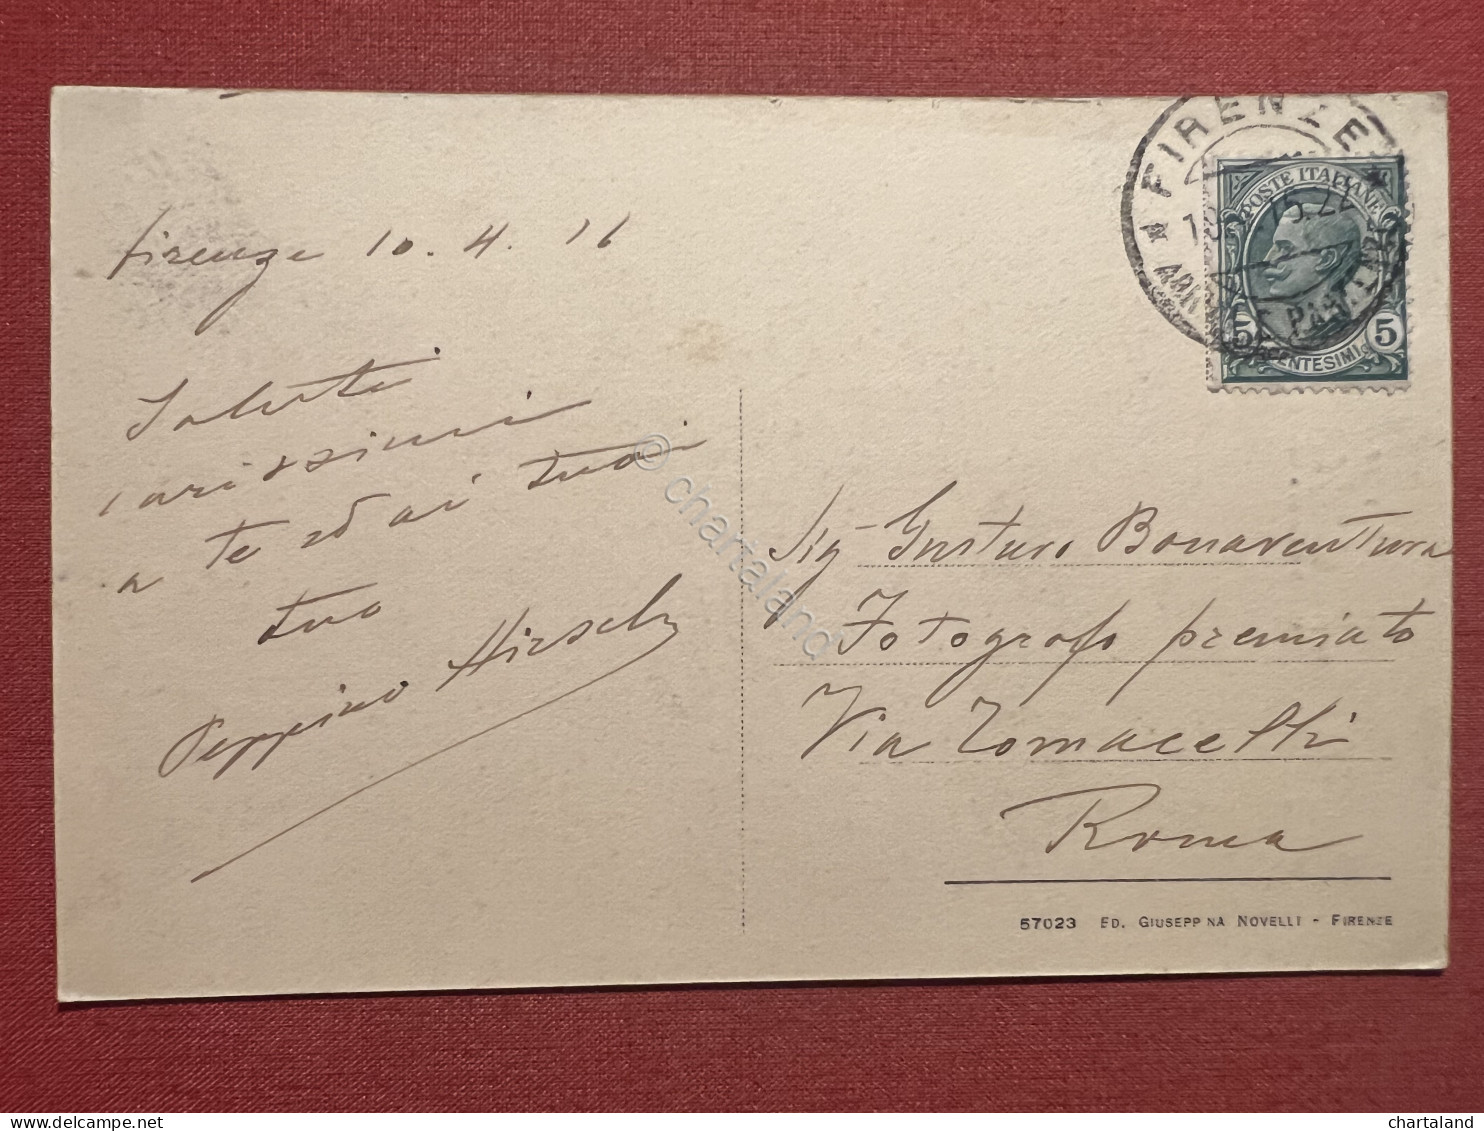 Firenze 10.4.16
Saluti
carissimi
a te ed ai tuoi
tuo
Peppino Hirsch
FIRENZE
ARRIVI E PARTENZE
POSTE ITALIANE
5 5
CENTESIMI
Sig Gustavo Bonaventura
Fotografo premiato
Via Tomacelli
Roma
57023 ED. GIUSEPPINA NOVELLI - FIRENZE
© chartaland
delcampe.net
chartaland